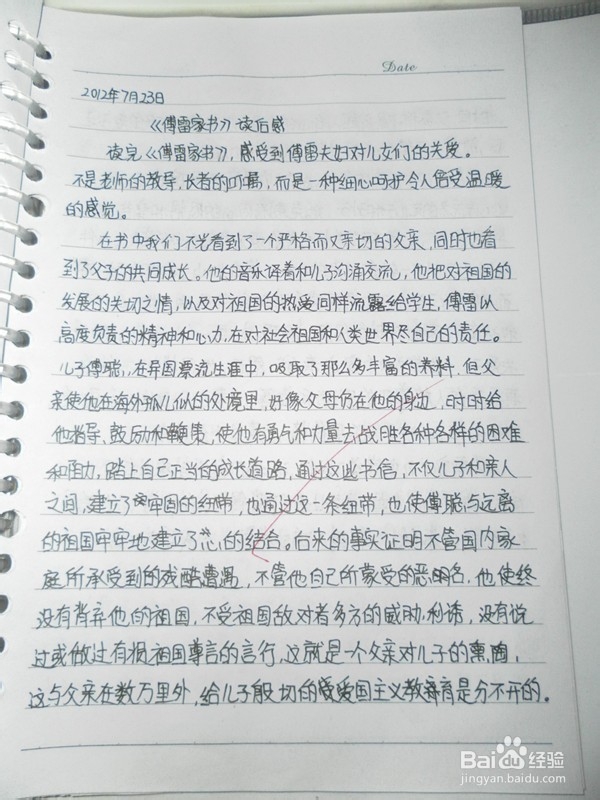 Date
2012年7月23日
《傅雷家书》读后感
读完《傅雷家书》,感受到傅雷夫妇对儿女们的关爱。
不是老师的教导,长者的叮嘱,而是一种细心呵护令人倍受温暖
的感觉。
在书中我们不光看到了一个严格而又亲切的父亲,同时也看
到了父子的共同成长。他的音乐译着和儿子沟通交流,他把对祖国的
发展的关切之情,以及对祖国的热爱同样流露给学生,傅雷以
高度负责的精神和心力,在对社会祖国和人类世界尽自己的责任。
儿子傅聪,在异国漂流生涯中,吸取了那么多丰富的养料,但父
亲使他在海外孤儿似的处境里,好像父母仍在他的身边,时时给
他指导,鼓励和鞭策,使他有勇气和力量去战胜各种各样的困难
和阻力,踏上自己正当的成长道路,通过这些书信,不仅儿子和亲人
之间,建立了牢固的纽带,也通过这一条纽带,也使傅聪与远离
的祖国牢牢地建立了心的结合。后来的事实证明不管国内家
庭所承受到的残酷遭遇,不管他自己所蒙受的恶名,他使终
没有背弃他的祖国,不受祖国敌对者多方的威胁,利诱,没有说
过或做过有损祖国尊言的言行。这就是一个父亲对儿子的熏陶,
这与父亲在数万里外,给儿子殷切的爱国主义教育是分不开的。
Baidu经验
jingyan.baidu.com